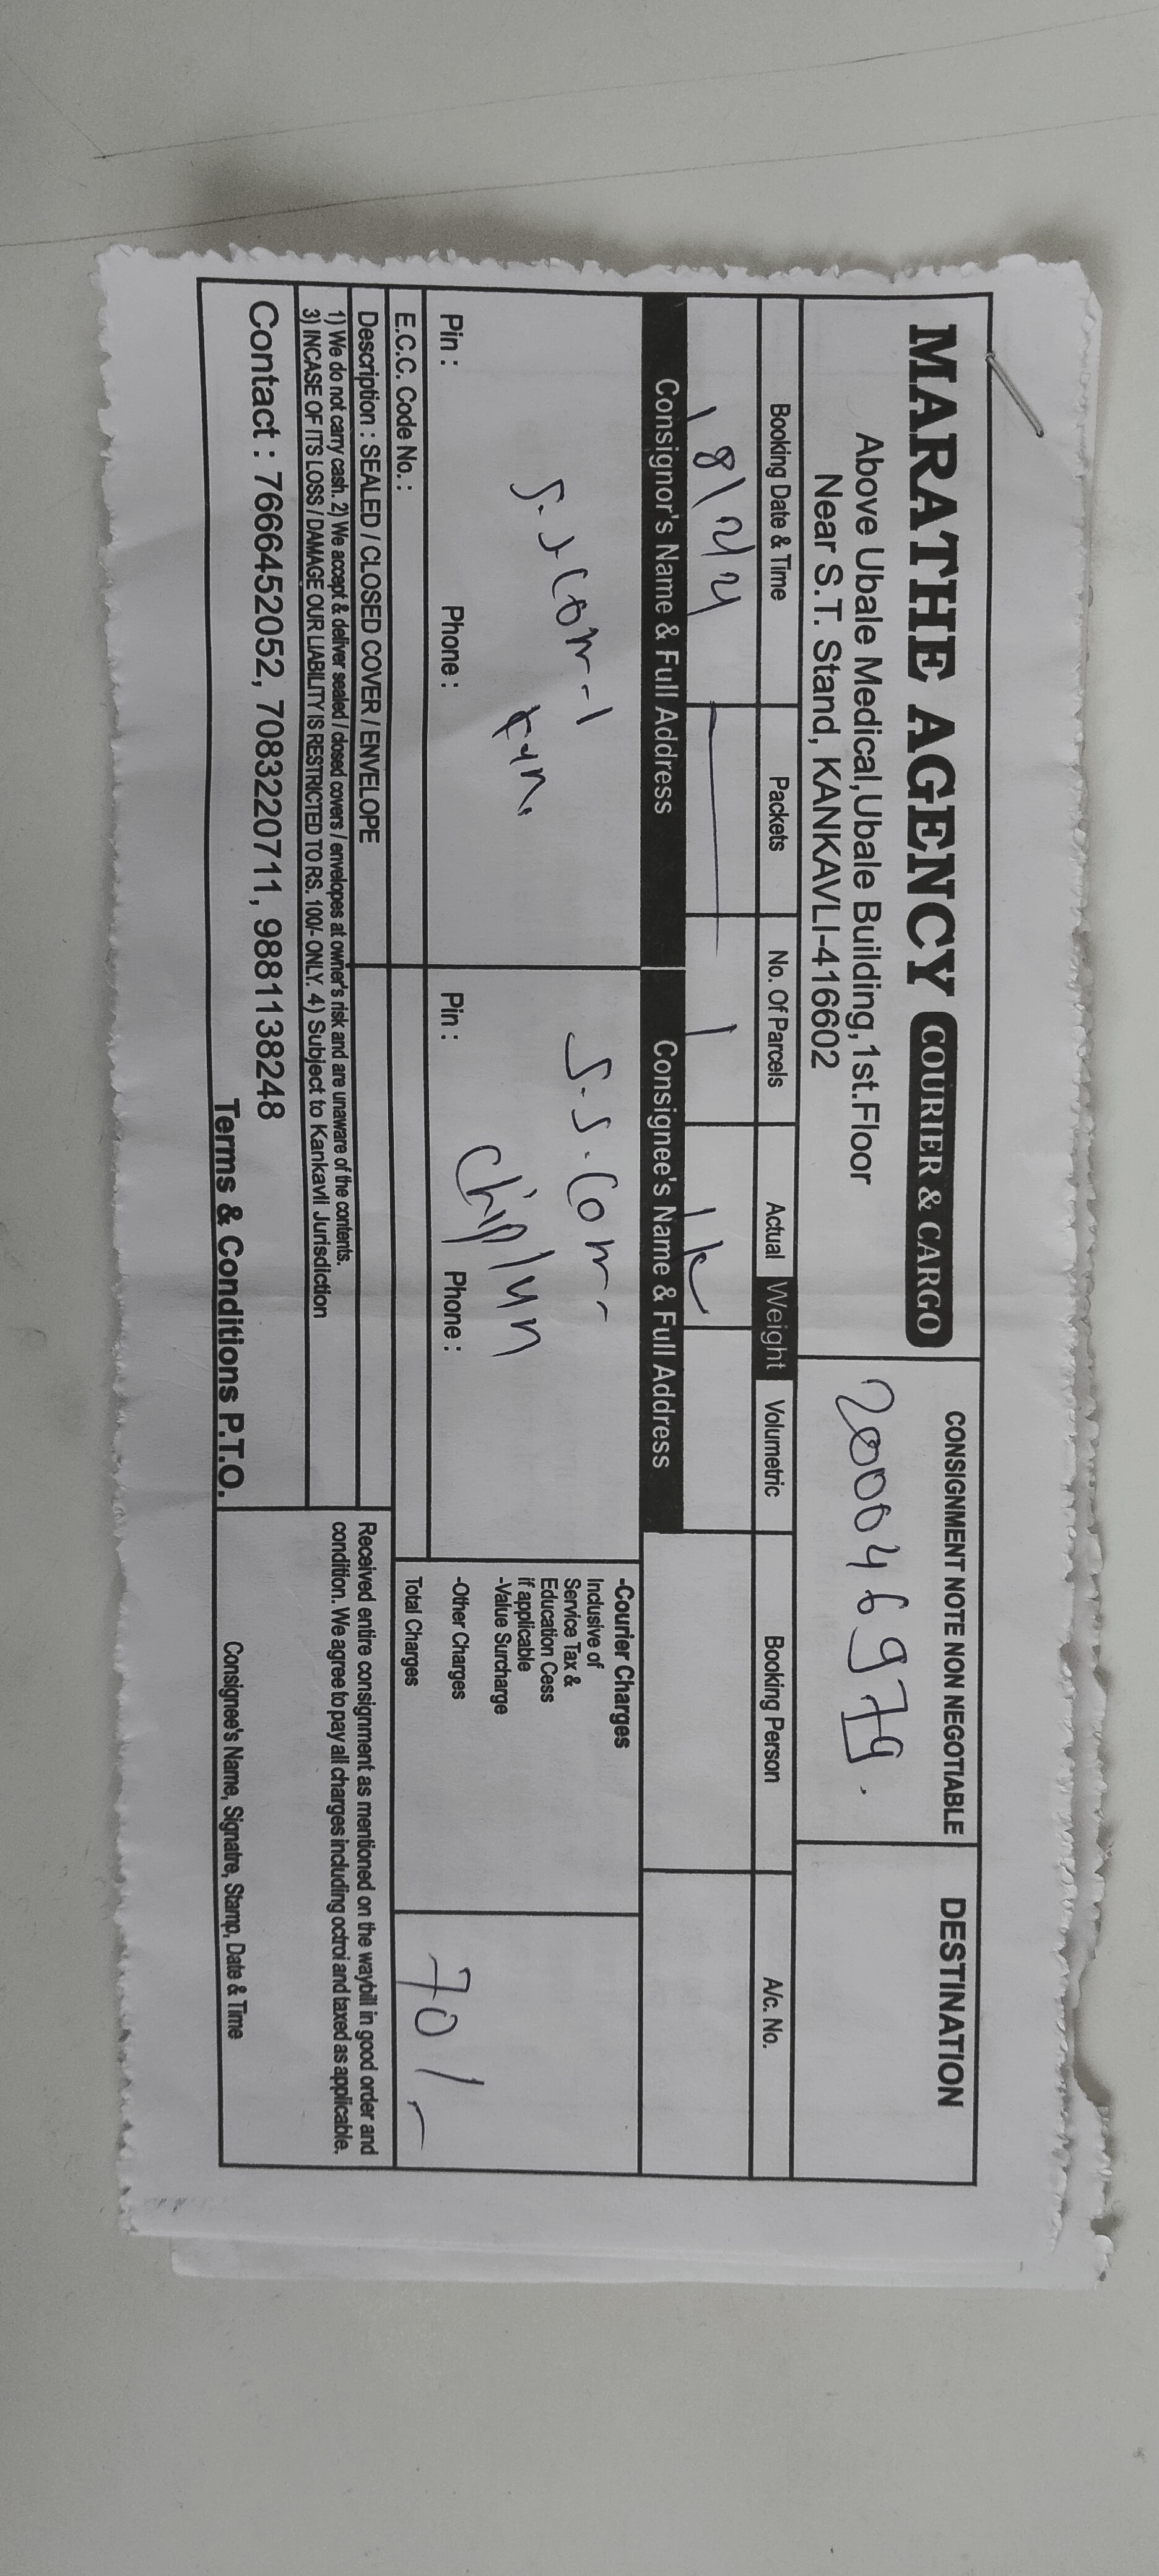 MARATHE AGENCY COURIER & CARGO
Above Ubale Medical,Ubale Building,1st.Floor
Near S.T. Stand, KANKAVLI-416602
CONSIGNMENT NOTE NON NEGOTIABLE
200046979.
DESTINATION
Booking Date & Time Packets No. Of Parcels Actual Weight Volumetric Booking Person A/c. No.
1
Consignor's Name & Full Address Consignee's Name & Full Address
S.S.Com-
Chiplun
Pin : Phone : Pin : Phone :
E.C.C. Code No. :
-Courier Charges
Inclusive of
Service Tax &
Education Cess
if applicable
-Value Surcharge
-Other Charges
Total Charges
70/-
Description : SEALED / CLOSED COVER / ENVELOPE
1) We do not carry cash. 2) We accept & deliver sealed / closed covers / envelopes at owner's risk and are unaware of the contents.
3) INCASE OF ITS LOSS / DAMAGE OUR LIABILITY IS RESTRICTED TO RS. 100/- ONLY. 4) Subject to Kankavli Jurisdiction
Contact : 7666452052, 7083220711, 9881138248
Terms & Conditions P.T.O.
Received entire consignment as mentioned on the waybill in good order and
condition. We agree to pay all charges including octroi and taxed as applicable.
Consignee's Name, Signatre, Stamp, Date & Time